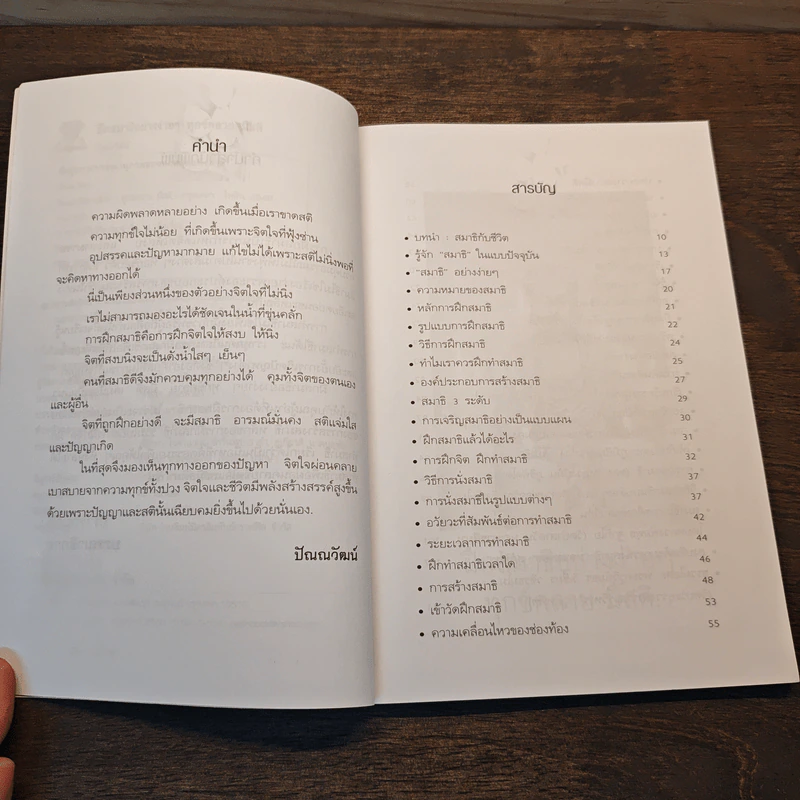 คำนำ
ความผิดพลาดหลายอย่าง เกิดขึ้นเมื่อเราขาดสติ
ความทุกข์ใจไม่น้อย ที่เกิดขึ้นเพราะจิตใจที่ฟุ้งซ่าน
อุปสรรคและปัญหามากมาย แก้ไขไม่ได้เพราะสติไม่นิ่งพอที่
จะคิดหาทางออกได้
นี่เป็นเพียงส่วนหนึ่งของตัวอย่างจิตใจที่ไม่นิ่ง
เราไม่สามารถมองอะไรได้ชัดเจนในน้ำที่ขุ่นคลั่ก
การฝึกสมาธิคือการฝึกจิตใจให้สงบ ให้นิ่ง
จิตที่สงบนิ่งจะเป็นดั่งน้ำใสๆ เย็นๆ
คนที่สมาธิดีจึงมักควบคุมทุกอย่างได้ คุมทั้งจิตของตนเอง
และผู้อื่น
จิตที่ถูกฝึกอย่างดี จะมีสมาธิ อารมณ์มั่นคง สติแจ่มใส
และปัญญาเกิด
ในที่สุดจึงมองเห็นทุกทางออกของปัญหา จิตใจผ่อนคลาย
เบาสบายจากความทุกข์ทั้งปวง จิตใจและชีวิตมีพลังสร้างสรรค์สูงขึ้น
ด้วยเพราะปัญญาและสตินั้นเฉียบคมยิ่งขึ้นไปด้วยนั่นเอง.
ปัณณวัฒน์
สารบัญ
• บทนำ : สมาธิกับชีวิต 10
• รู้จัก "สมาธิ" ในแบบปัจจุบัน 13
• "สมาธิ" อย่างง่ายๆ 17
• ความหมายของสมาธิ 20
• หลักการฝึกสมาธิ 21
• รูปแบบการฝึกสมาธิ 22
• วิธีการฝึกสมาธิ 24
• ทำไมเราควรฝึกทำสมาธิ 25
• องค์ประกอบการสร้างสมาธิ 27
• สมาธิ 3 ระดับ 29
• การเจริญสมาธิอย่างเป็นแบบแผน 30
• ฝึกสมาธิแล้วได้อะไร 31
• การฝึกจิต ฝึกทำสมาธิ 32
• วิธีการนั่งสมาธิ 37
• การนั่งสมาธิในรูปแบบต่างๆ 37
• อวัยวะที่สัมพันธ์ต่อการทำสมาธิ 42
• ระยะเวลาการทำสมาธิ 44
• ฝึกทำสมาธิเวลาใด 46
• การสร้างสมาธิ 48
• เข้าวัดฝึกสมาธิ 53
• ความเคลื่อนไหวของช่องท้อง 55